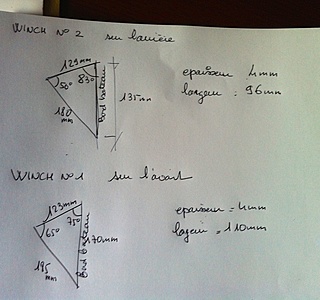 WINCH N° 2 sur l'arrière
123mm
50°
83°
180 mm
Bord bateau
135mm
epaisseur 4mm
largeur : 96mm
WINCH N° 1 sur l'avant
123mm
65°
75°
170mm
195 mm
Bord bateau
epaisseur = 4mm
largeur = 110mm